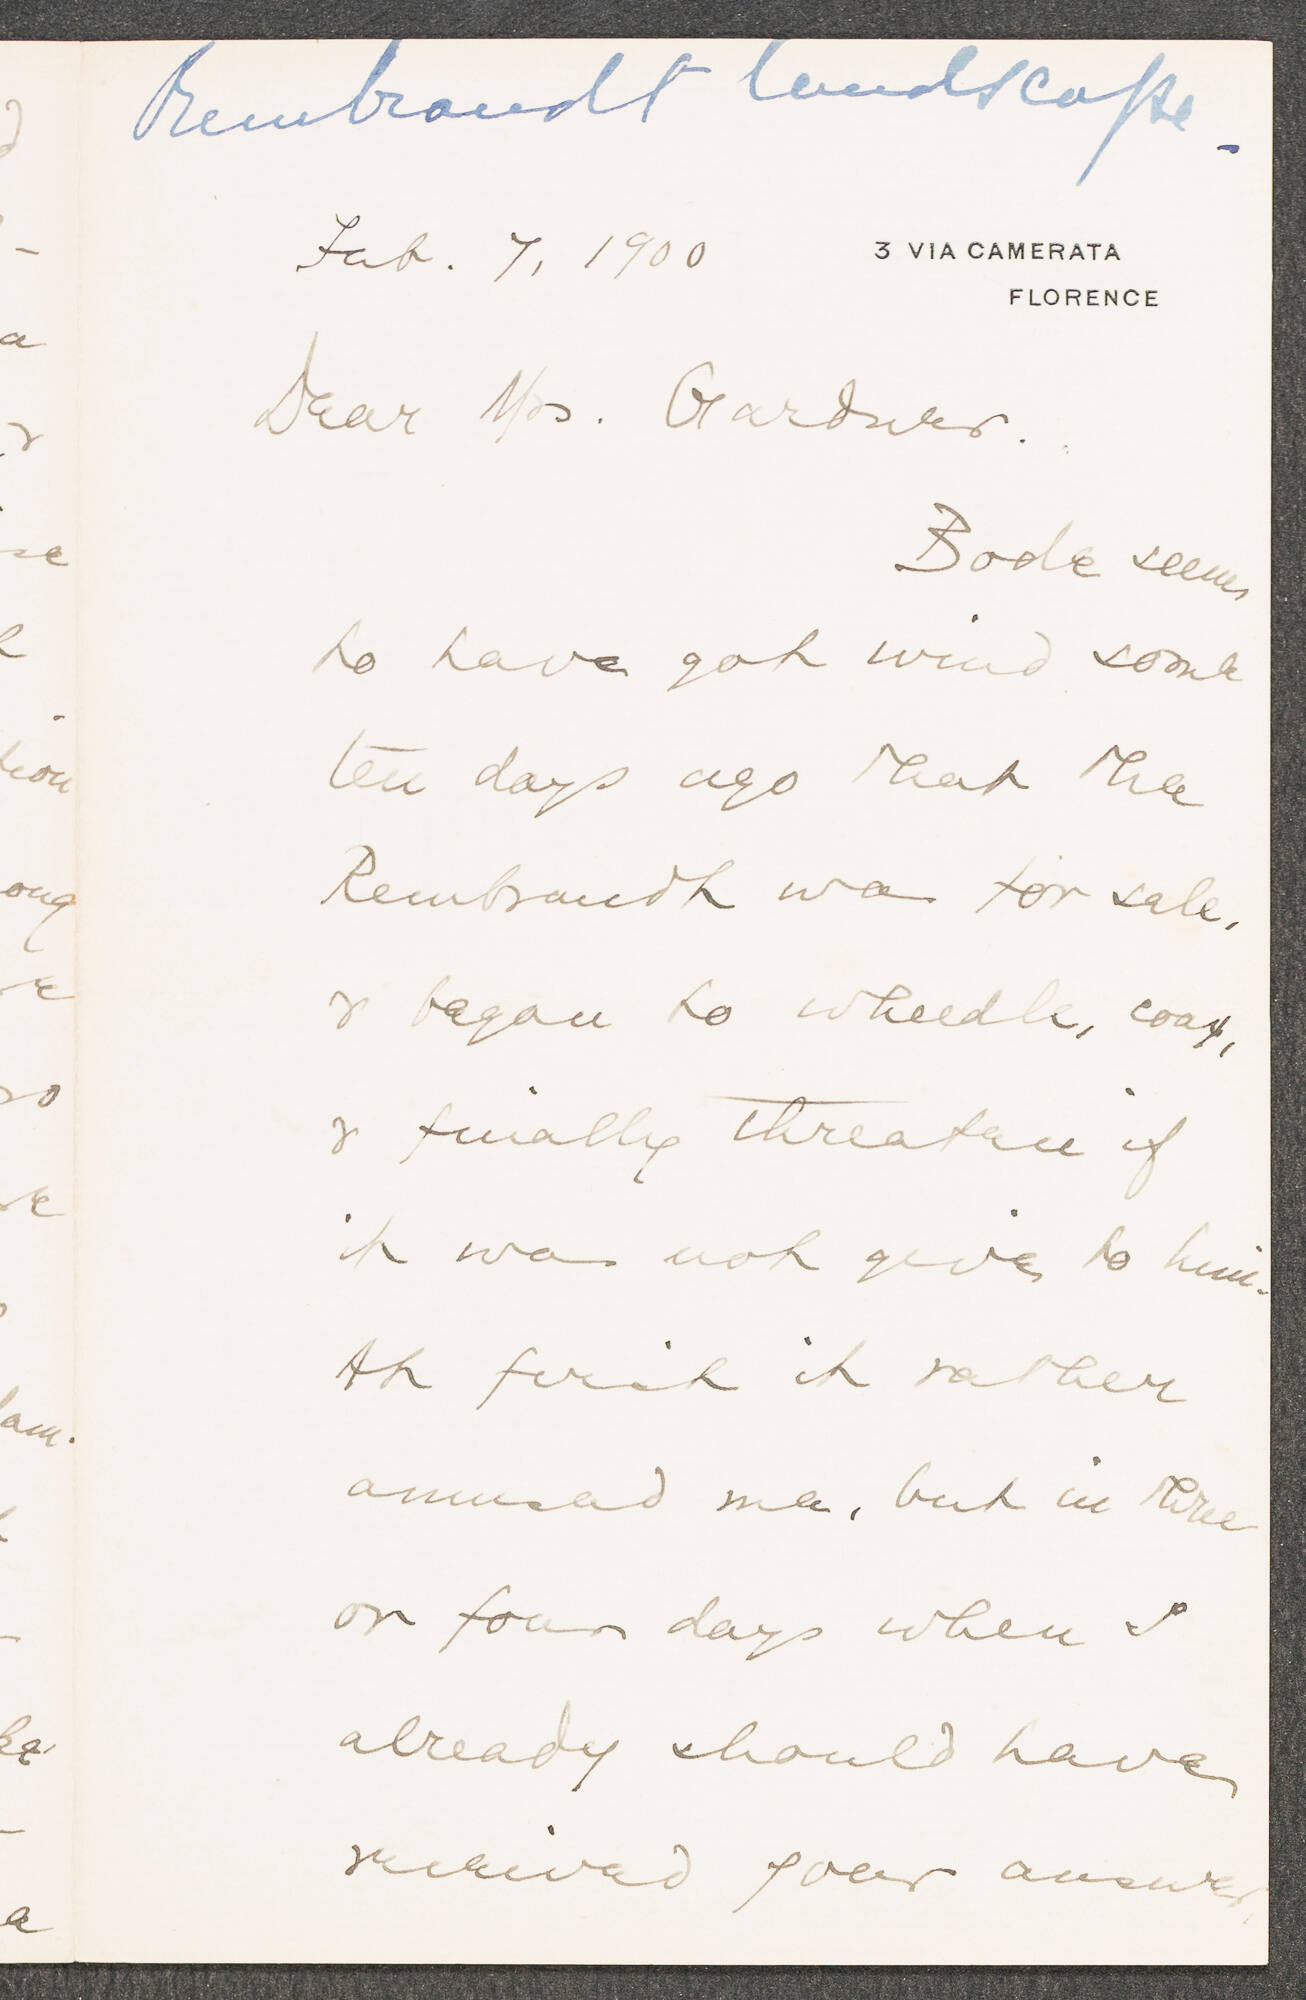 Rembrandt landscape.
Feb. 7, 1900
3 VIA CAMERATA
FLORENCE
Dear Mrs. Gardner.
Bode seems
to have got wind some
ten days ago that the
Rembrandt was for sale,
& began to wheedle, coax,
& finally threaten if
it was not give to him.
At first it rather
amused me, but in three
or four days when I
already should have
received your answer,